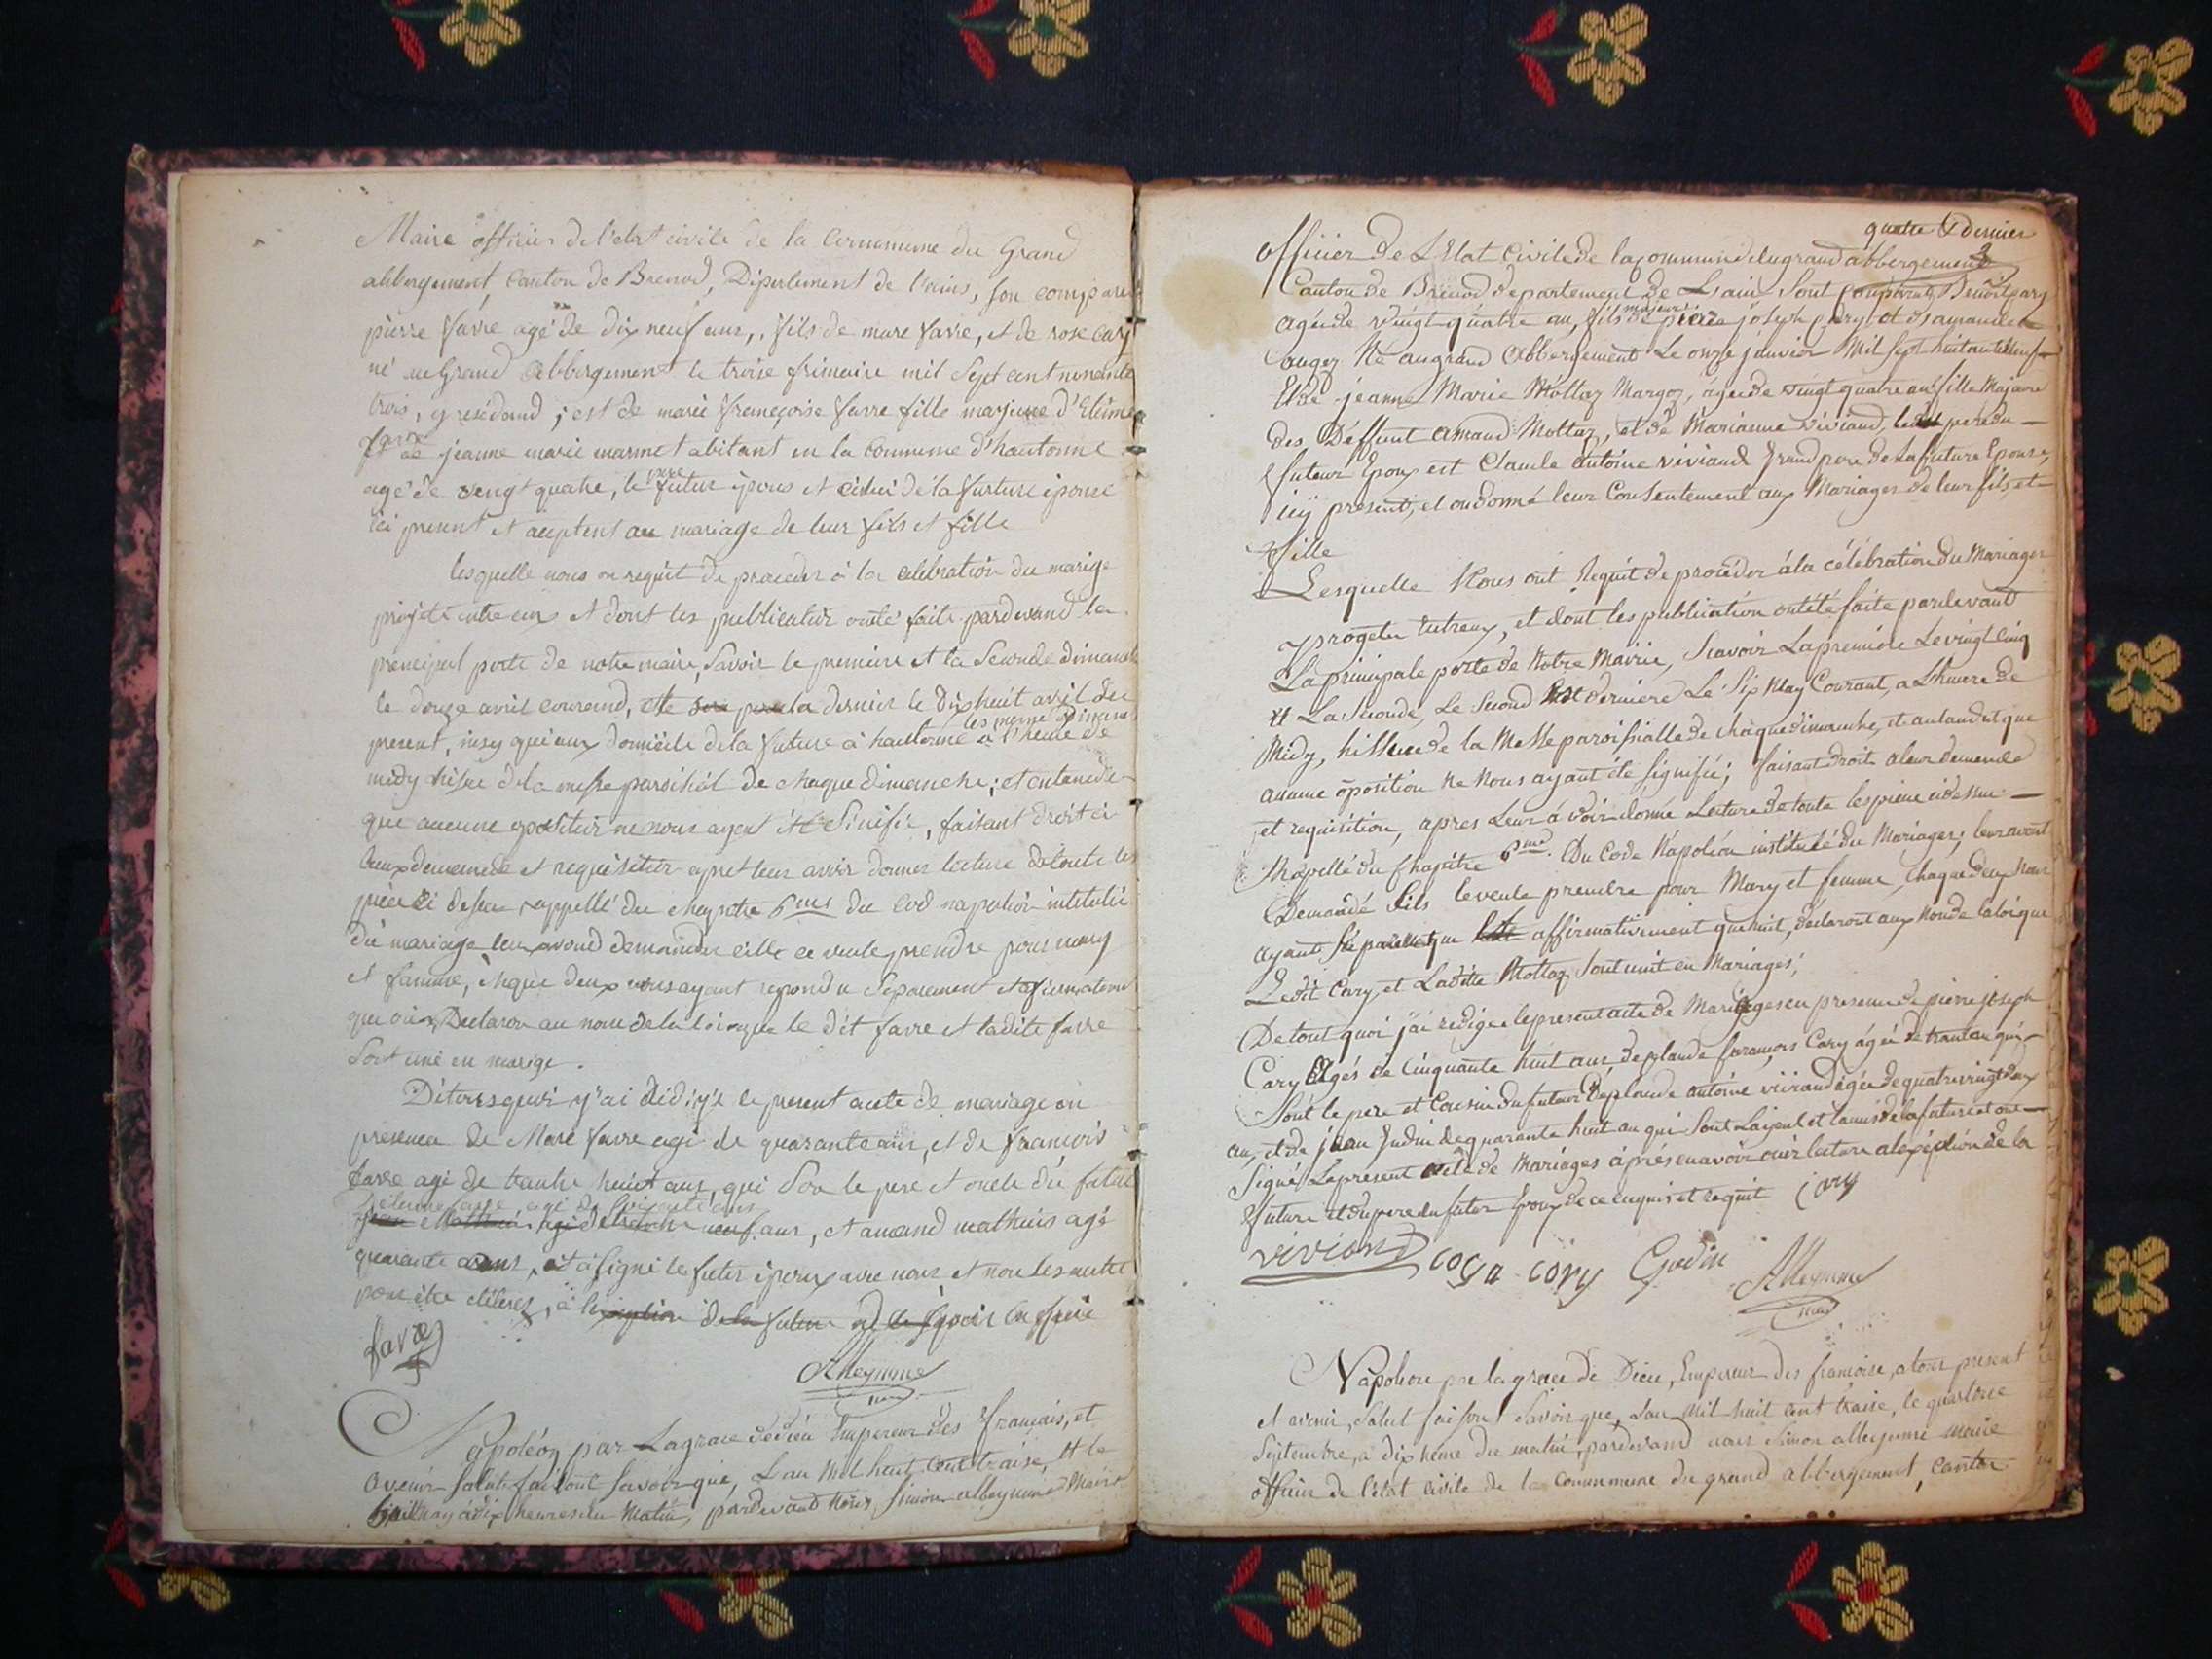 Maire officier de l'etat civile de la Commune du Grand
abbergement, Canton de Brenod, Dipertement de l'ains, son comparu
pierre favre agé de dix neuf ans, fils de marc favre, et de rose cary
né au Grand Abbergement le troise frimaire mil Sept cent nonante
trois, y resédand, est de marie françoise favre fille marjeure d'Etiene
favre
et de jeanne marie marmet abitant en la Commune d'hautonne
agé de vengt quatre, le pere futur epous et celui de la furture eponse
ici present et aceptent au mariage de leur fils et fille
lesquelle nous on requit de proceder à la celebration du marige
projeté entre eux et dont les publication onété faite pardevand la
prencipal porte de notre mairie, Savoir le premiere et la Seconde dimanche
le douze avril courand, et la dernier le dix heuit avril du
les meme dimanche
present, insy qu'aux domicile de la future à hautonne à l'heure de
midy hisue de la messe paroihial de chaque dimanche; et entendu
que aucune oposition ne nous ayent été Sinifié, faisant droit à
leur demende et requisition apret leur avoir donner lecture de toute les
pièce ci desu, rappellé du chapitre 6me du Cod napoléon intitulé
du mariage leur avond demander cille ce veule prendre pour mary
et famme, chaque deux nous ayant repondu Séparement et afirmativem
que oui, Declaron au nom de la loi que le dit favre et ladite favre
Sont uni en marige.
De tous quoi j'ai rédigé le present acte de mariage en
presence de Marc favre agé de quarante ans, et de francois
favre agé de trante heuit ans, qui Son le pere et oncle du futur
Etienne favre agé de soixante ans
ans, et amand mathieu agé
quarante ans, et a signé le futur époux avec nous et non les autre
pour être illiteré, à
favre
Alleymme
maire
Napoléon par La grace de dieu Empereur des français, et
avenir Salut faisont Savoir que, L'an mil huit cent traise, et le
may à dix heures du Matin, pardevand nous, Simon alleymme Maire
quatre & dernier
officier de L'Etat Civile de la commune du grand abbergement
Canton de Brenod departement de L'ain Sont comparuts Benoit Cary
agée de vingt quatre an, fils majeur de pierre joseph Cary et d'amandine
augez né au grand Abbergement Le onze janvier Mil sept huitante neuf
Et de jeanne Marie Mottaz Margoz, agée de vingt quatre ans fille Majeure
des Deffunt amand Mottaz, et de Marianne viviand, le dit pere du
futeur Epoux est Claude antoine viviand grand pere de La future Epouse,
icÿ présent, et ondonné leur Consentement aux Mariages de leur fils et
fille
Lesquelle Nous ont Requit de procéder á la célébration du Mariages
progeter entreux, et dont les publication ontété faite pardevant
La principale porte de Notre Mairie, Scavoir La premiére Le vingt cinq
et La Seconde, Le Second et derniere Le Six May Courant, a L'heure de
Midy, hissue de la Messe paroissialle de chaque dimanche, et autandut que
aucune öposition Ne Nous ayant été signifié; faisant droit a leur demende
et requisition, apres Leur à voir donné Lecture de toute les pieces cidessue
Rapellé du Chapitre 6me Du Code Napoléon intitulé du Mariages; leur avont
Demandé Sils ceveule prendre pour Mary et femme, Chaque deux Nous
ayant Séparement que affirmativement que huit, déclaront aux Nom de la loi que
Ledit Cary, et Ladite Mottaz, Sont unit en Mariages;
De tout quoi j'ai redigé le present acte de Mariages en presence de pierre joseph
Cary âgés de Cinquante huit ans, de glaude francois Cary ágée de trante an qui
Sont le pere et Cousin du futeur De glaude antoine viviand agée de quatre vingt deux
an, et de jean Gudin de quarante huit an qui Sont L'ajeul et l'amis de la future et ont
Signé Le present acte de Mariages áprés en avoir ouir lecture a lexéption de la
future et du pere du futur Epoux de ce enquis et requit Cary
viviand coga cory Godin
Alleymme
maire
Napoleon par la grace de Dieu, Empereur des francoise, atous present
et avenir, Salut faison Savoir que, L'an mil huit cent traise, le quatorse
Septembre, a dix heure du matin, pardevand nous Simon alleymme maire
officier de l'etat civile de la Commune du grand abbergement, canton